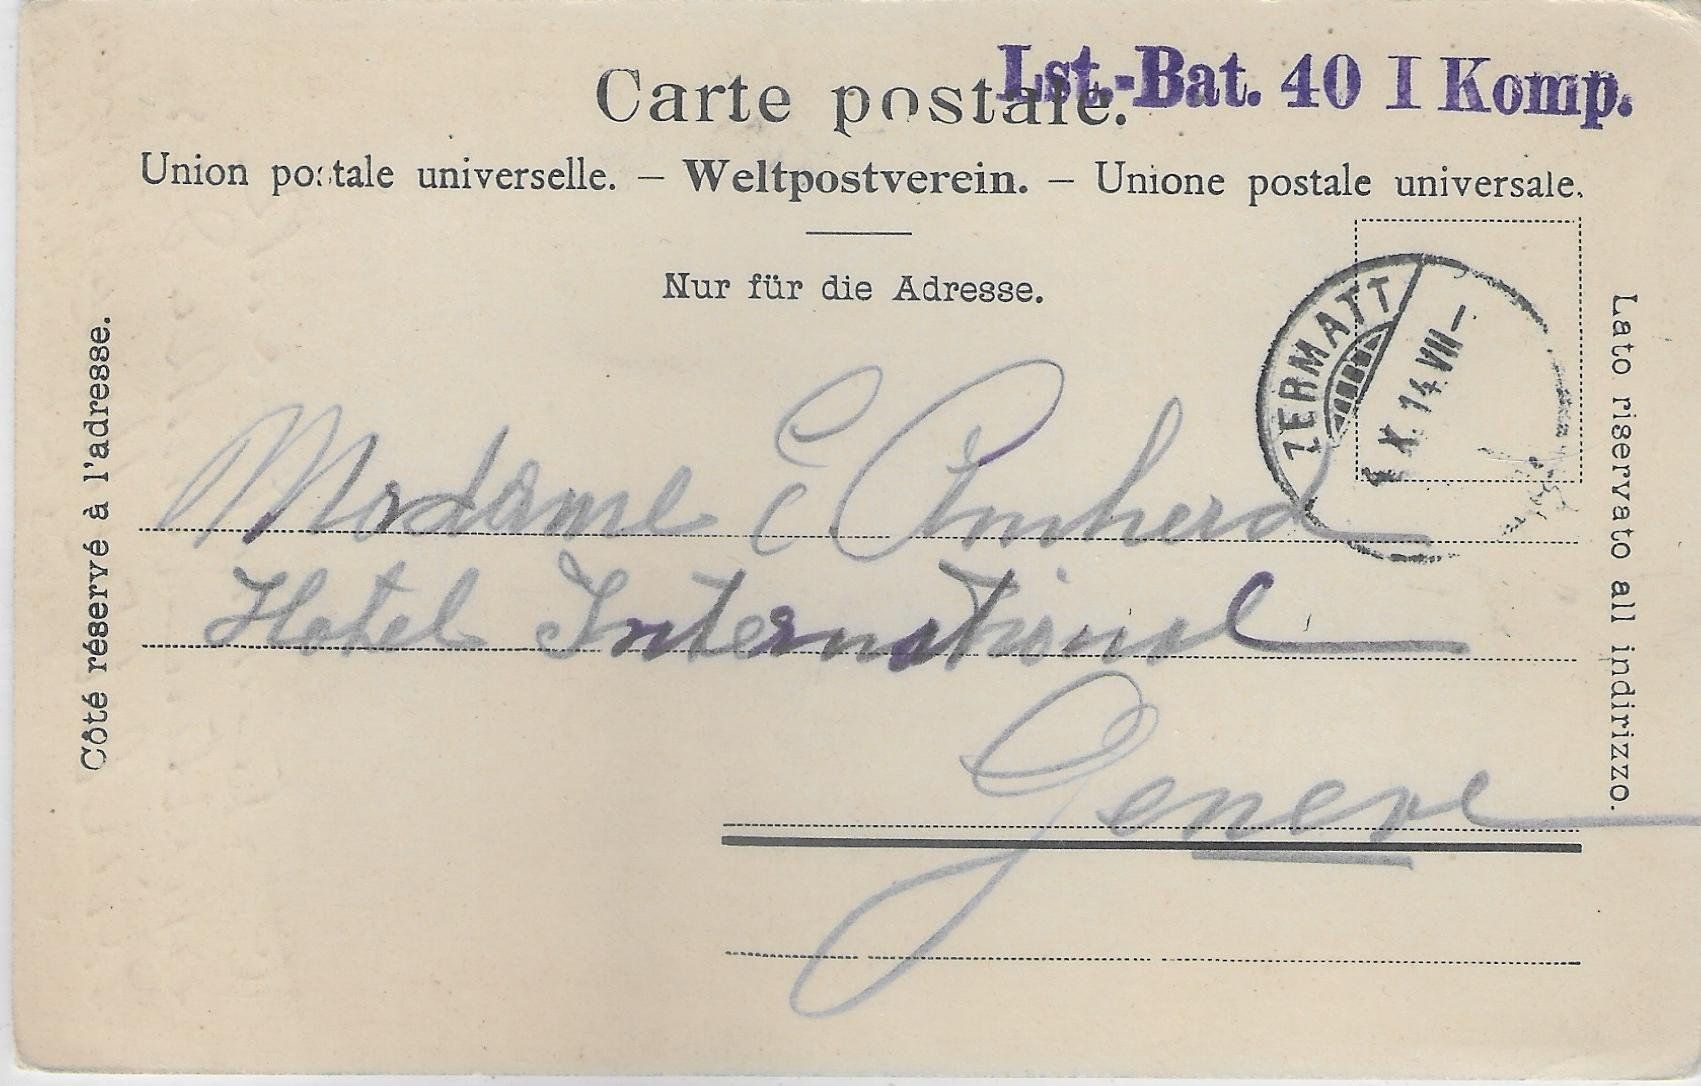 Lst.-Bat. 40 I Komp.
Carte postale.
Union postale universelle. — Weltpostverein. — Unione postale universale.
Nur für die Adresse.
Côté réservé à l'adresse.
Lato riservato all indirizzo.
ZERMATT
X. 14. VII —
Madame E Amherd
Hotel International
Geneve